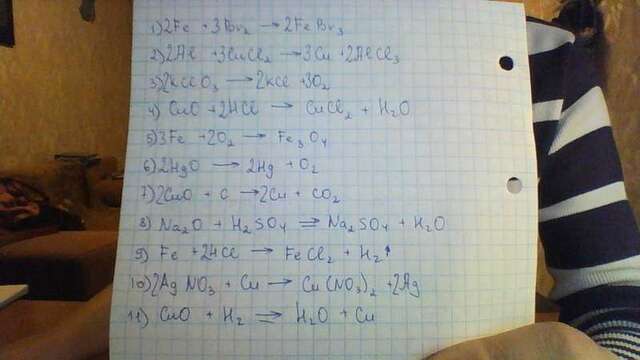 1) 2Fe + 3Br₂ → 2FeBr₃
2) 2Al + 3CuCl₂ → 3Cu + 2AlCl₃
3) 2KClO₃ → 2KCl + 3O₂
4) CuO + 2HCl → CuCl₂ + H₂O
5) 3Fe + 2O₂ → Fe₃O₄
6) 2HgO → 2Hg + O₂
7) 2CuO + C → 2Cu + CO₂
8) Na₂O + H₂SO₄ = Na₂SO₄ + H₂O
9) Fe + 2HCl → FeCl₂ + H₂↑
10) 2AgNO₃ + Cu → Cu(NO₃)₂ + 2Ag
11) CuO + H₂ → H₂O + Cu